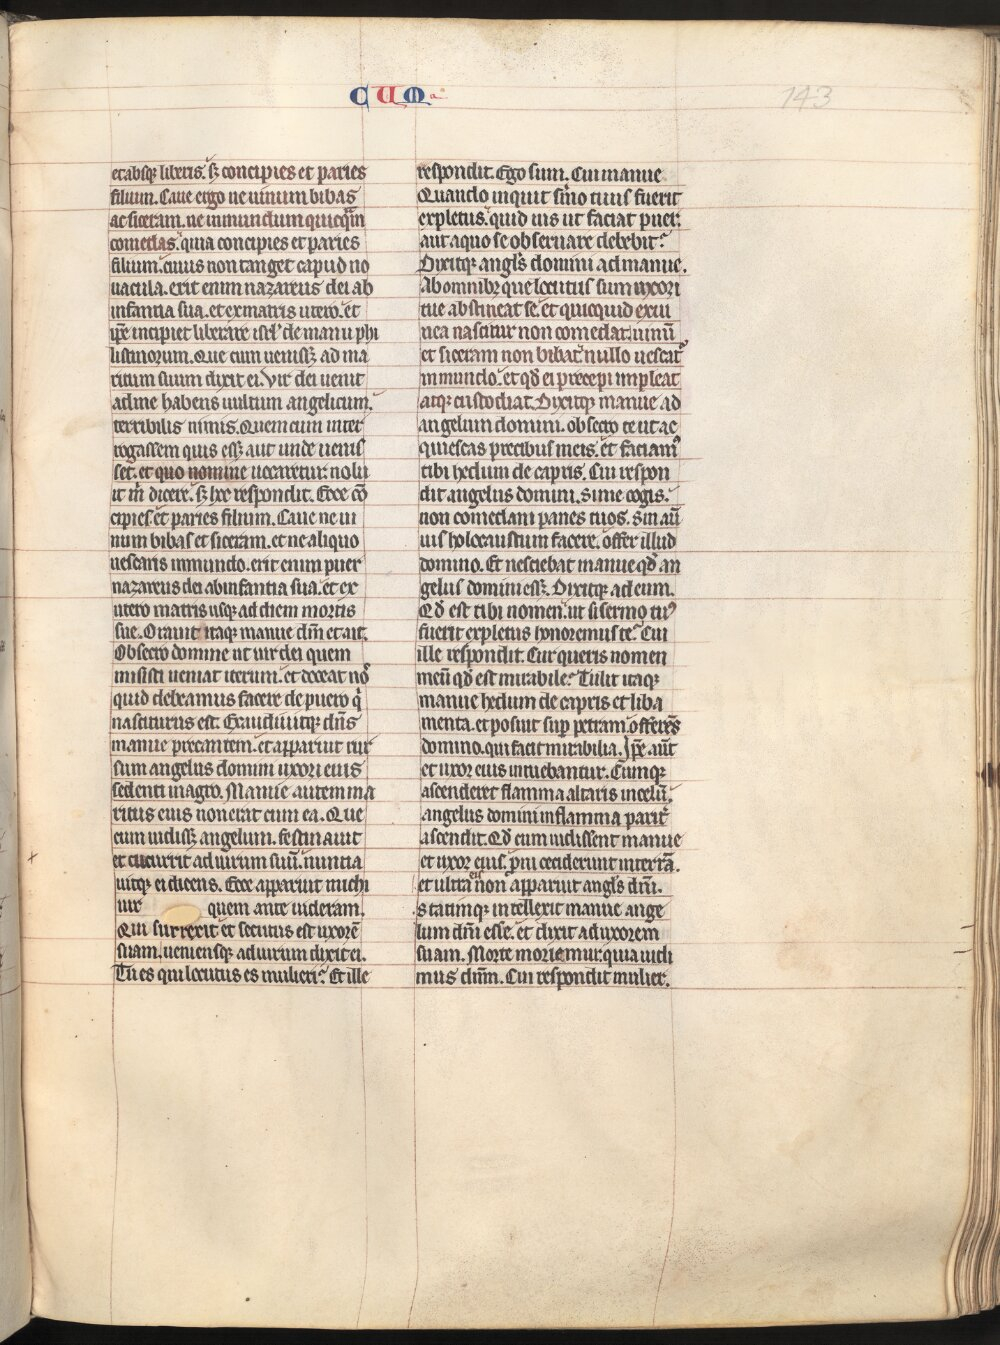 CUM
143
et absq; liberis. s; concipies et paries
filium. Caue ergo ne uinum bibas
ac siceram. ne inmundum quicq̄m
comedas. quia concipies et paries
filium. cuius non tanget capud no
uacula. erit enim nazareus dei ab
infantia sua. et ex matris utero. et
ip̄e incipiet liberare isrl̄ de manu phi
listinorum. Que cum uenisset; ad ma
ritum suum dixit ei. Vir dei uenit
ad me habens uultum angelicum.
terribilis nimis. Quem cum inter
rogassem quis ess; aut unde uenis
set. et quo nomine uocaretur: nolu
it m̄ dicere. s; hec respondit. Ecce cō
cipies. et paries filium. Caue ne ui
num bibas et siceram. et ne aliquo
uescaris inmundo. erit enim puer
nazareus dei ab infantia sua. et ex
utero matris usq; ad diem mortis
sue. Orauit itaq; manue dn̄m et ait.
Obsecro domine ut uir dei quem
misisti ueniat iterum. et doceat nos
quid debeamus facere de puero q
nasciturus est. Exaudiuitq; dn̄s
manue precantem. et apparuit rur
sum angelus domini uxori eius
sedenti in agro. Manue autem ma
ritus eius non erat cum ea. Que
cum uidiss; angelum. festinauit
et cucurrit ad uirum suū. nuntia
uitq; ei dicens. Ecce apparuit michi
uir quem ante uideram.
Qui surrexit et secutus est uxorē
suam. ueniensq; ad uirum dixit ei.
Tu es qui locutus es mulieri? Et ille
respondit. Ego sum. Cui manue
Quando inquit s̄mo tuus fuerit
expletus. quid uis ut faciat puer.
aut a quo se obseruare debebit?
Dixitq; angl̄s domini ad manue.
Ab omnib; que locutus sum uxori
tue abstineat se. et quicquid ex ui
nea nascitur non comedat. uinū
et siceram non bibat. nullo uescat̄
inmundo. et qd̄ ei precepi impleat
atq; custodiat. Dixitq; manue ad
angelum domini. obsecro te ut ac
quiescas precibus meis. et faciam
tibi hedum de capris. Cui respon
dit angelus domini. Si me cogis.
non comedam panes tuos. Sin aū
uis holocaustum facere. offer illud
domino. Et nesciebat manue qd̄ an
gelus domini ess;. Dixitq; ad eum.
Qd̄ est tibi nomen. ut si sermo tu9
fuerit expletus honoremus te? Cui
ille respondit. Cur queris nomen
meū qd̄ est mirabile? Tulit itaq;
manue hedum de capris et liba
menta. et posuit sup petram. offerēs
domino. qui facit mirabilia. Ip̄e aūt
et uxor eius intuebantur. Cumq;
ascenderet flamma altaris in celū.
angelus domini in flamma parit̄
ascendit. Qd̄ cum uidissent manue
et uxor eius. p̄ni ceciderunt in terrā.
et ultra eis non apparuit angl̄s dn̄i.
Statimq; intellexit manue ange
lum dn̄i esse. et dixit ad uxorem
suam. Morte moriemur. quia uidi
mus dn̄m. Cui respondit mulier.